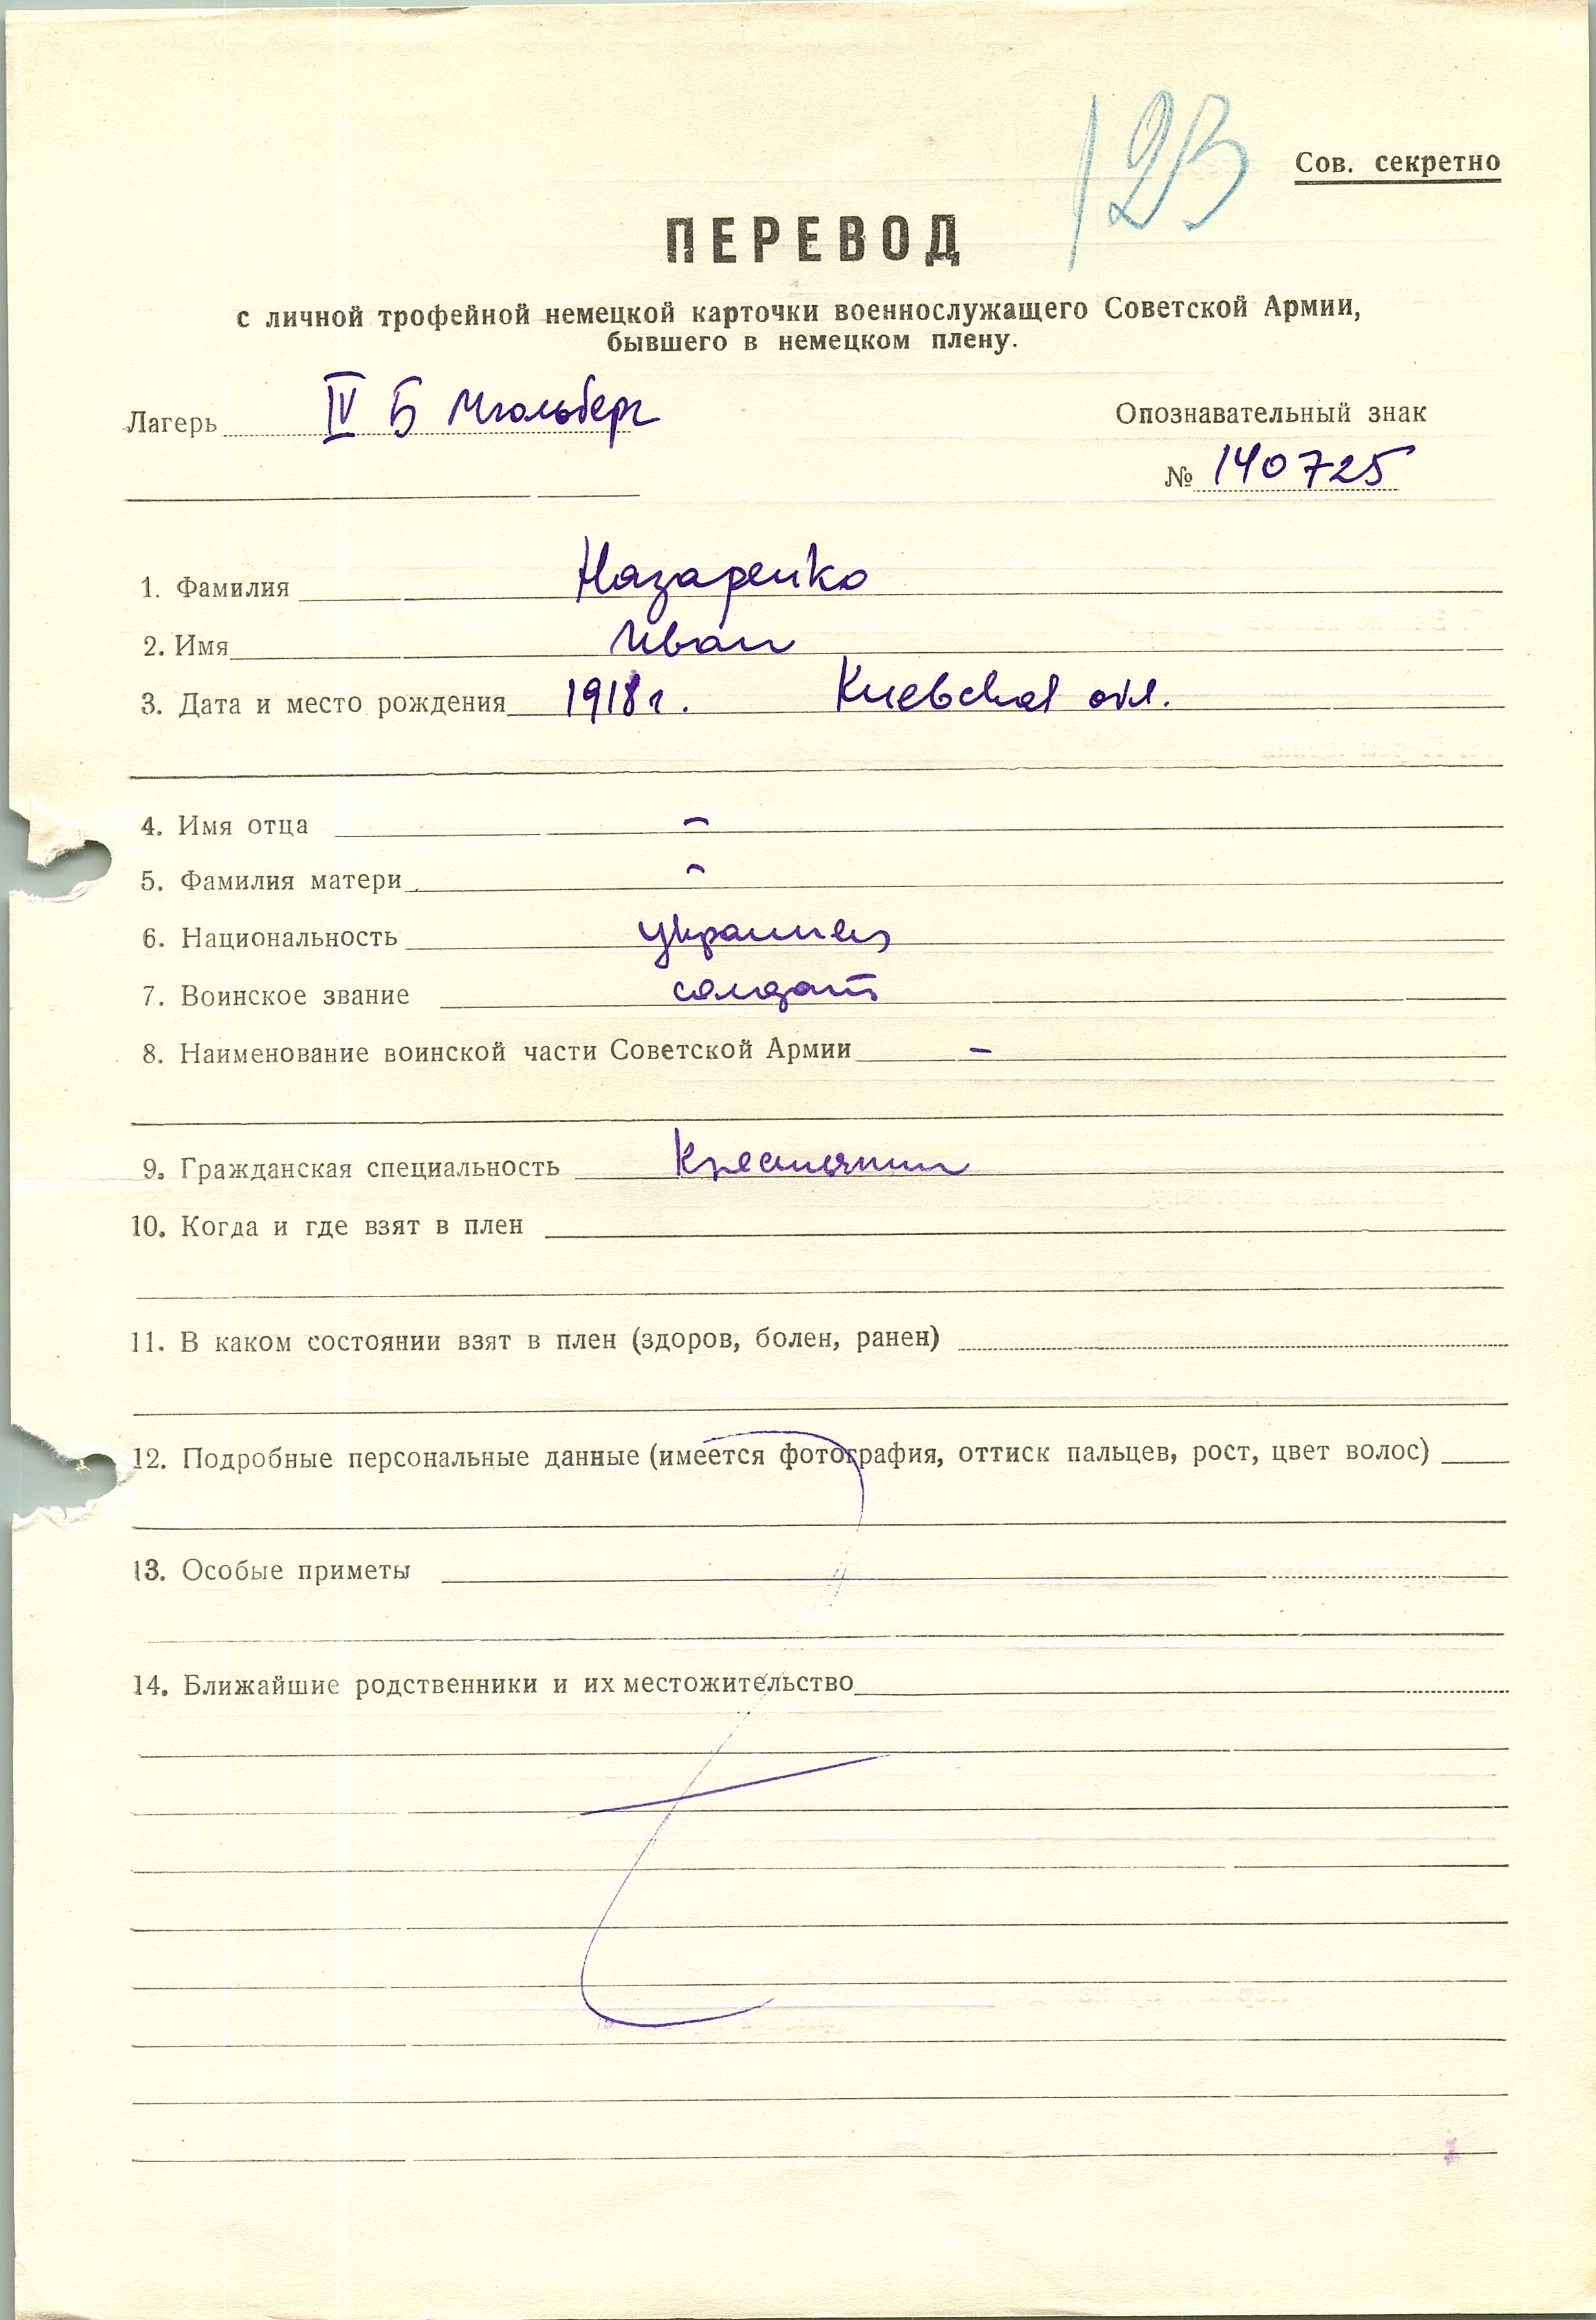 123
Сов. секретно
ПЕРЕВОД
с личной трофейной немецкой карточки военнослужащего Советской Армии,
бывшего в немецком плену.
Лагерь IV Б Мюльберг
Опознавательный знак
№ 140725
1. Фамилия Назаренко
2. Имя Иван
3. Дата и место рождения 1918 г. Киевская обл.
4. Имя отца -
5. Фамилия матери -
6. Национальность украинец
7. Воинское звание солдат
8. Наименование воинской части Советской Армии -
9. Гражданская специальность Крестьянин
10. Когда и где взят в плен
11. В каком состоянии взят в плен (здоров, болен, ранен)
12. Подробные персональные данные (имеется фотография, оттиск пальцев, рост, цвет волос)
13. Особые приметы
14. Ближайшие родственники и их местожительство